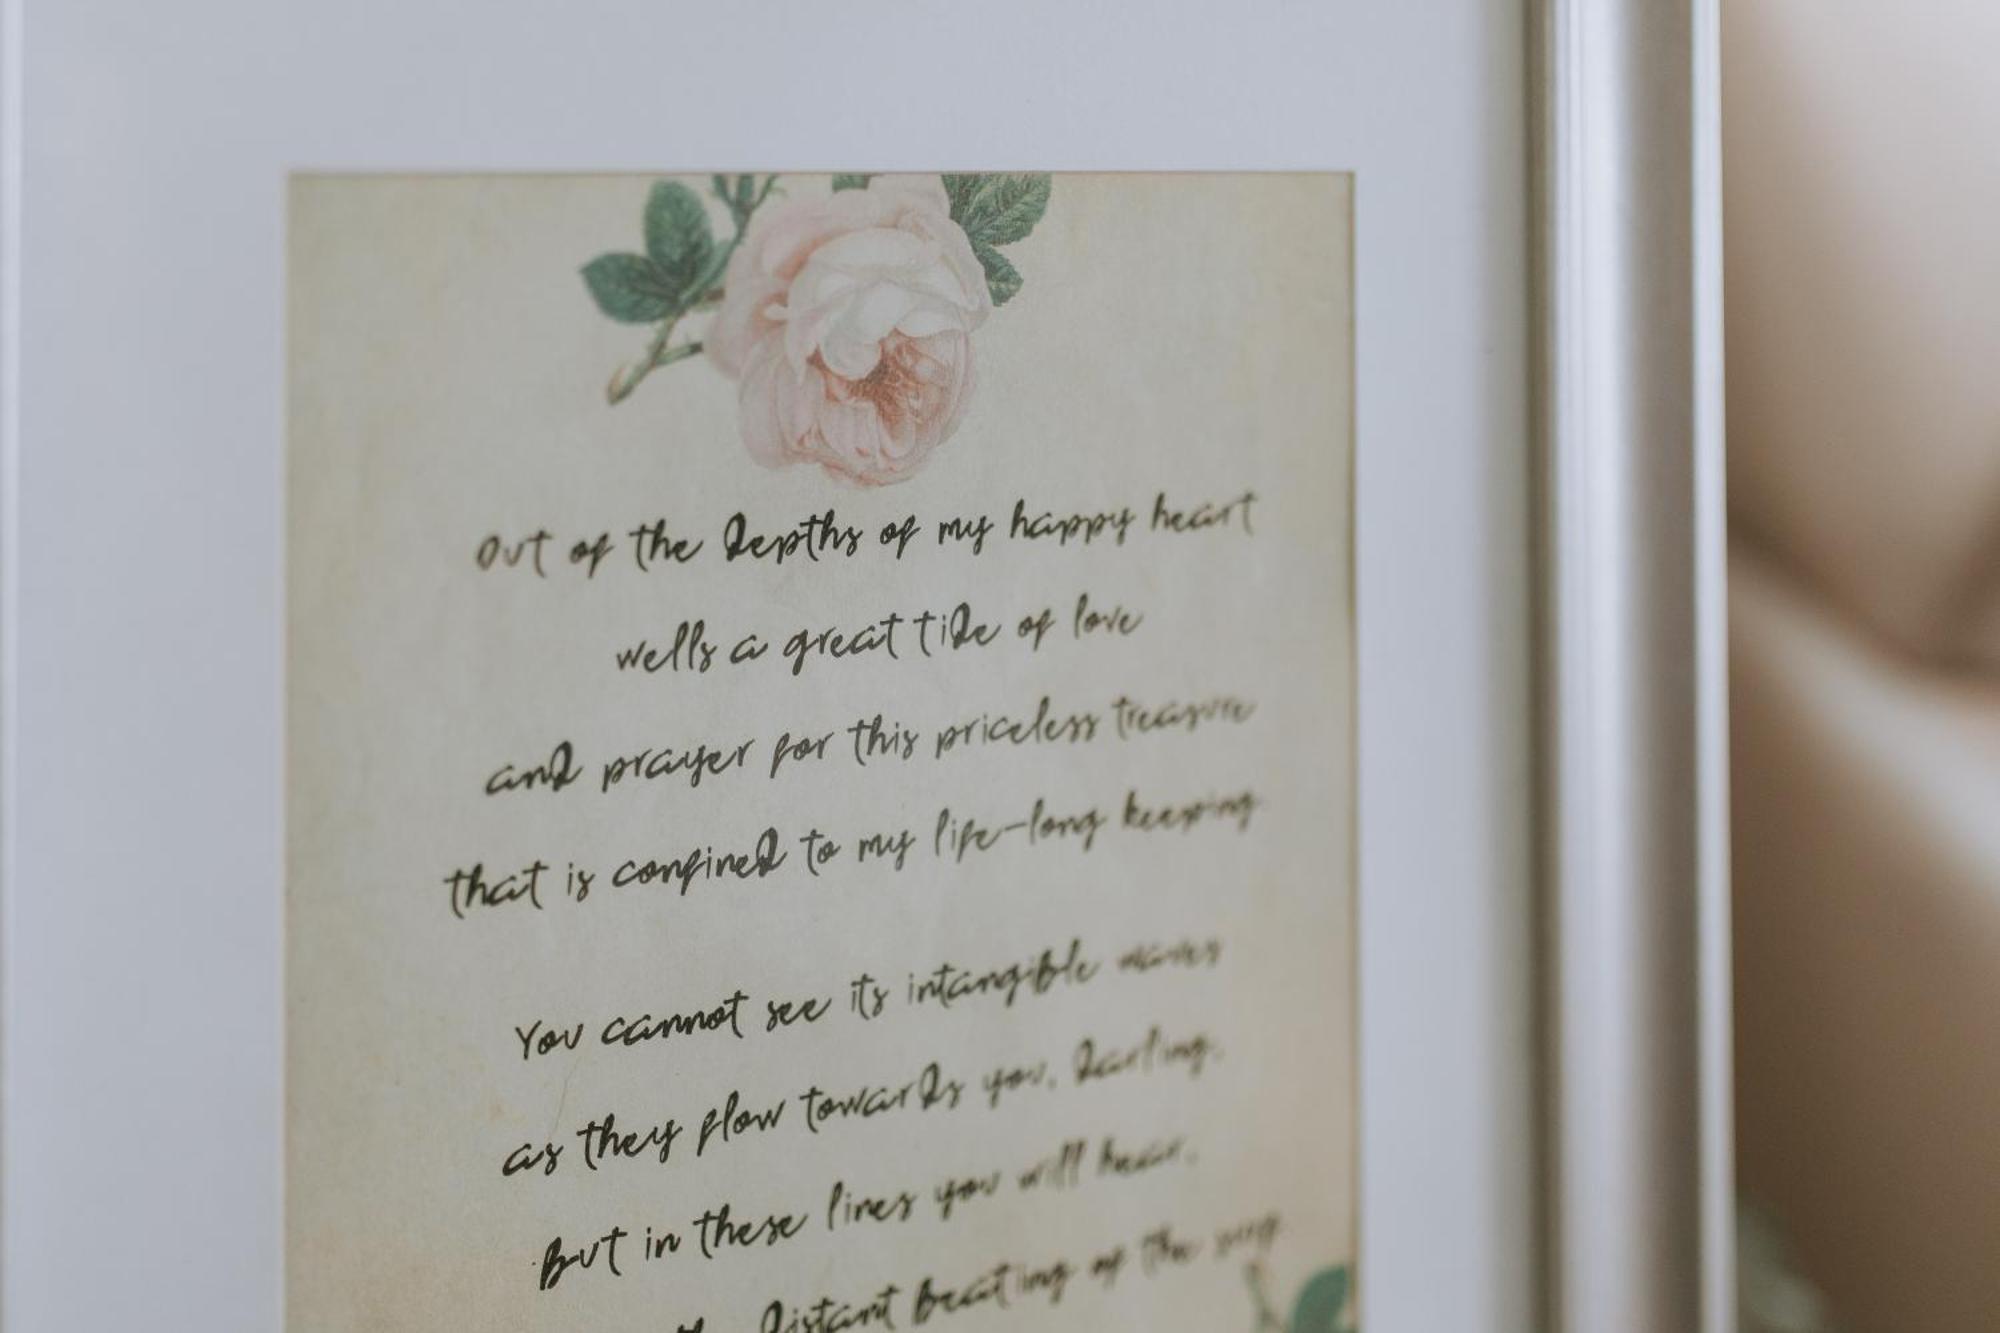 Out of the depths of my happy heart
wells a great tide of love
and prayer for this priceless treasure
that is confined to my life-long keeping.
You cannot see its intangible waves
as they flow towards you, darling,
But in these lines you will hear,
the distant beating of the surf.